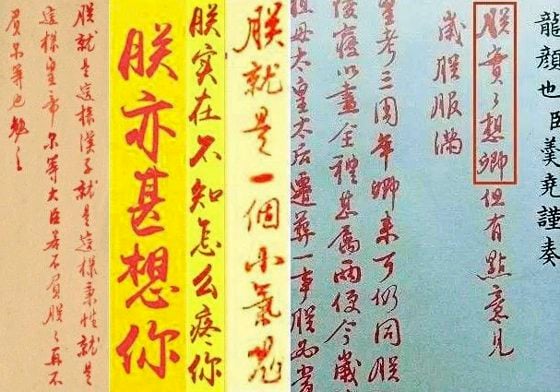 龍顏也臣羹堯謹奏
朕實々想卿但有點意見
歲朕服滿
皇考三周年卿來可仍同朕
陵寢以盡全禮甚屬兩便今歲
祖母太皇太后遷葬一事朕必
朕就是一個小氣鬼
朕实在不知怎么疼你
朕亦甚想你
朕就是這樣漢子就是這樣秉性就是
這樣皇帝尔等大臣若不負朕々再不
負尔等也勉之